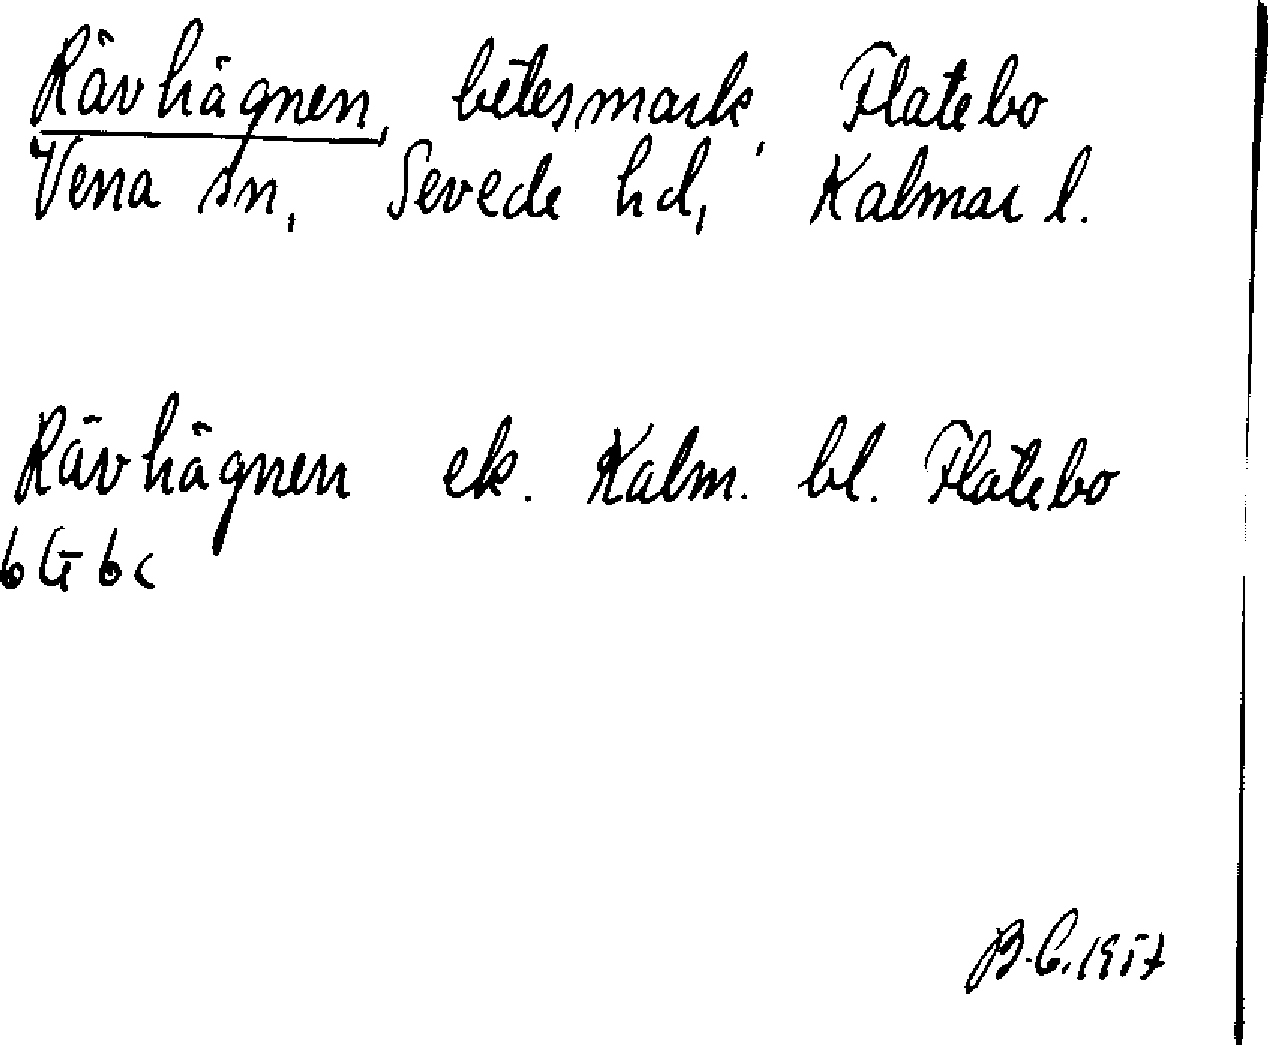 Rävhägnen, betesmark, Flatebo
Vena sn, Sevede hd, Kalmar l.
Rävhägnen ek. Kalm. bl. Flatebo
6G6c
B.C. 1957